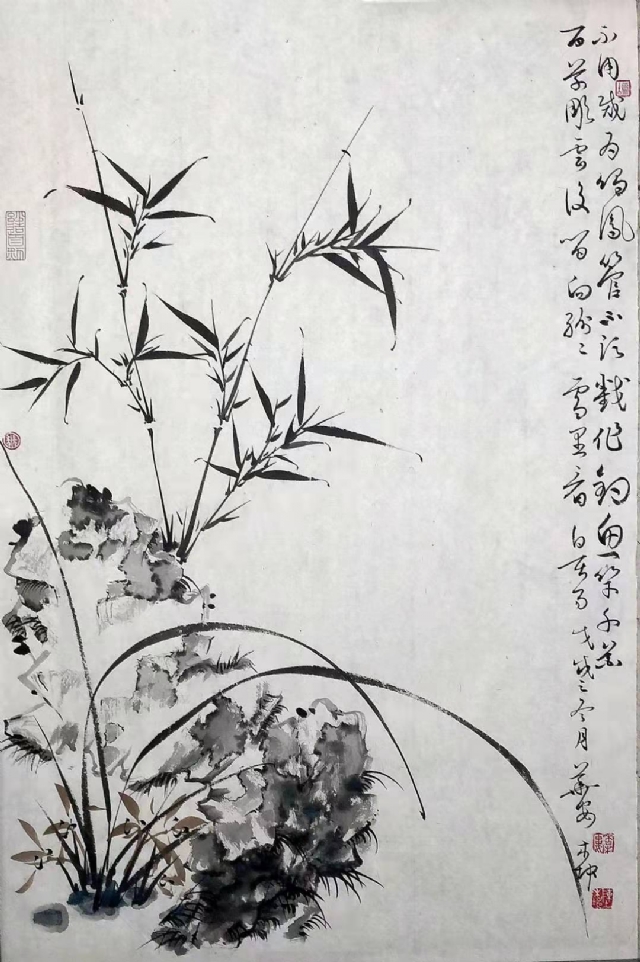 不用裁为鸣鳳管不须截作釣魚竿千花
百草彫零后留向紛〻雪里看白居易 戊戌之冬月